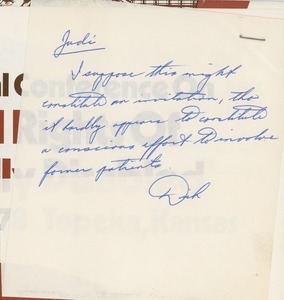 Judi
I suppose this might
constitute an invitation, tho
it hardly appears to constitute
a conscious effort to involve
former patients.
Conference On
Topeka, Kansas